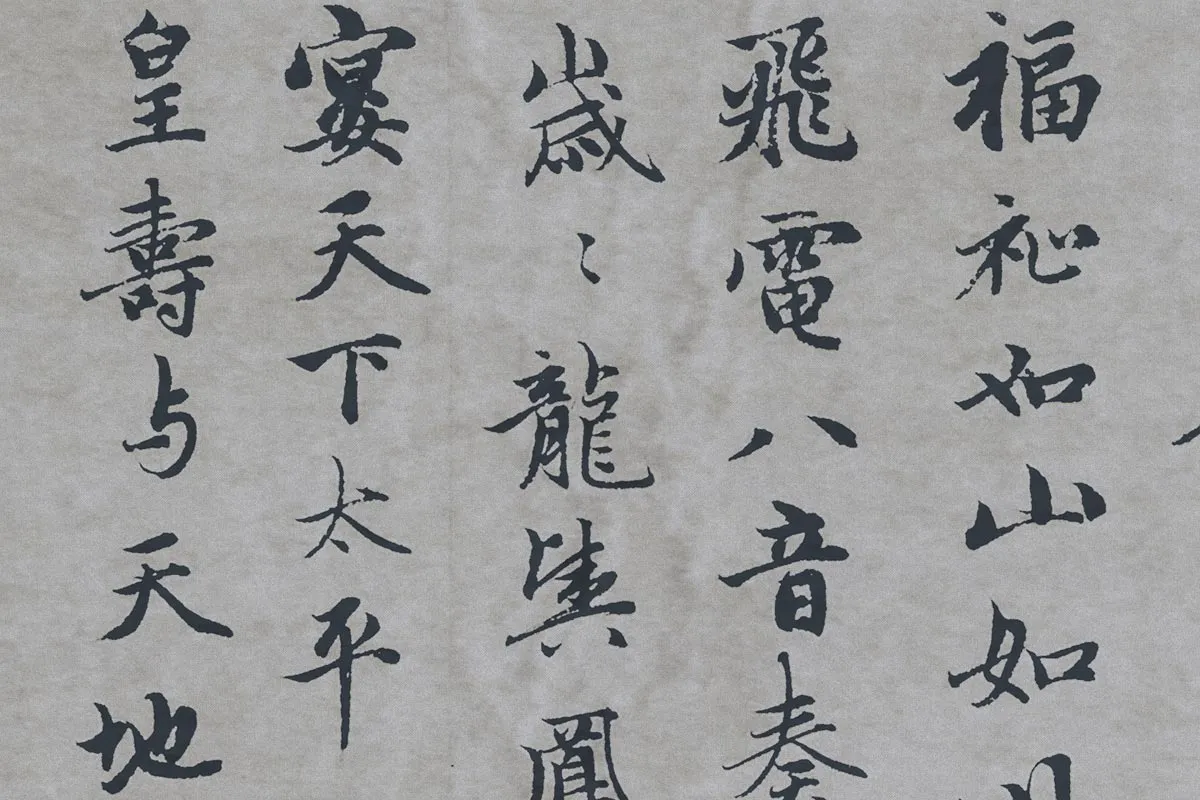 福祉如山如
飛電八音奏
歲〻龍興鳳
宴天下太平
皇壽与天地